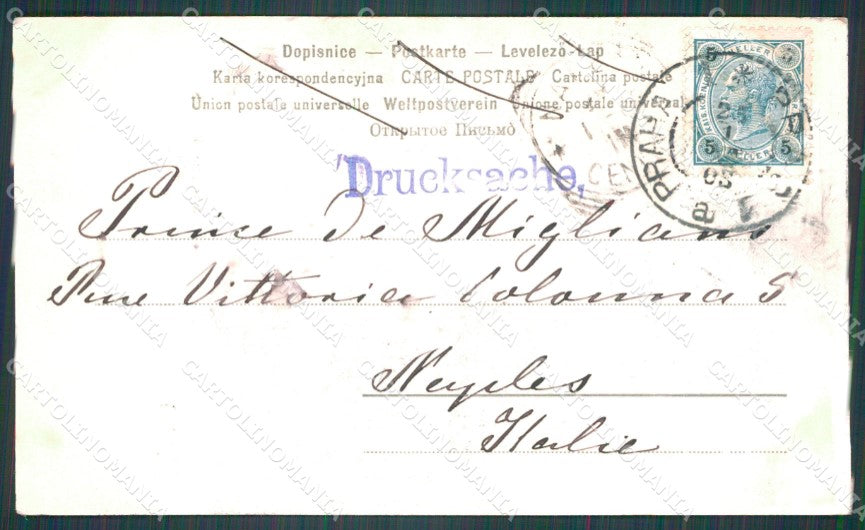 Dopisnice — Postkarte — Levelező-Lap
Karta korespondencyjna CARTE POSTALE Cartolina postale
Union postale universelle Weltpostverein Unione postale universale
Открытое Письмо
5 HELLER 5
5 HELLER 5
PRAHA
Drucksache,
Prince de Migliano
Rue Vittoria Colonna 5
Naples
Italie
CARTOLINOMANIA